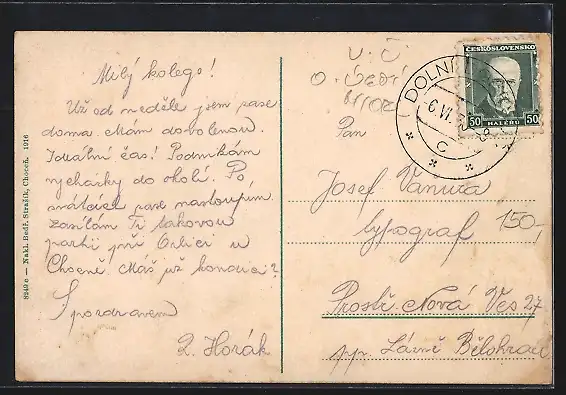 Milý kolego!
Už od neděle jsem zase
doma. Mám dovolenou.
Ideální čas! Podnikám
vycházky do okolí. Po
svátcích zase nastoupím.
Zasílám Ti takovou
partii při Orlici u
Chocně. Máš již kondici?
S pozdravem
L. Horák
8249 c — Nakl. Bedř. Strašík, Choceň. 1916
V. Č.
O. ÚSTÍ
Pan
Josef Vanura
typograf
150,-
Prostř. Nová Ves 27
pp. Lázně Bělohrad
ČESKOSLOVENSKO
50 HALÉŘŮ 50
DOLNÍ
6.VI.
C